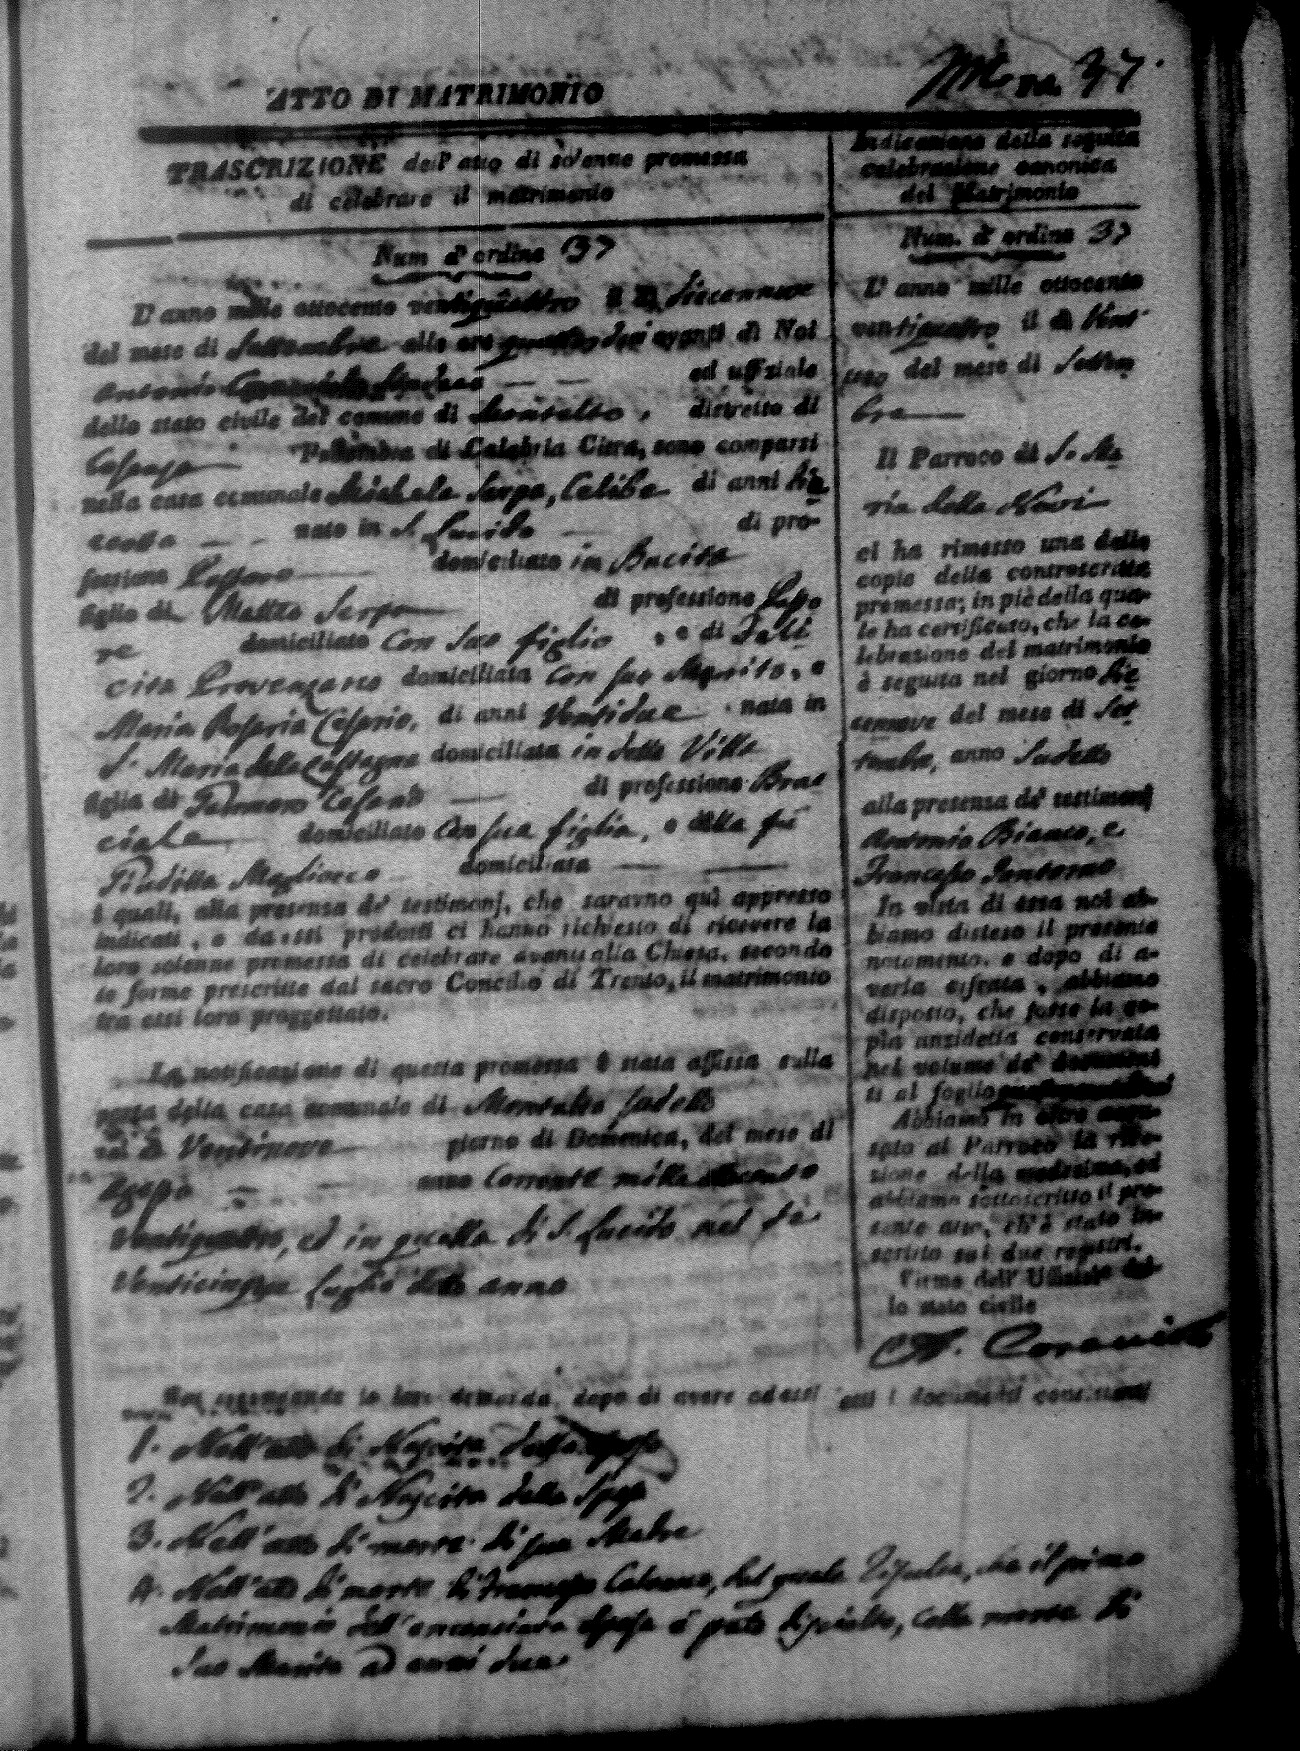 ATTO DI MATRIMONIO
37
TRASCRIZIONE dell' atto di solenne promessa
di celebrare il matrimonio
Num d' ordine 37
L' anno mille ottocento ventiquattro il dì Diecennove
del mese di Settembre alle ore avanti di Noi
Antonio Sindaco ed uffiziale
dello stato civile del comune di Montalto, distretto di
Cosenza Provincia di Calabria Citra, sono comparsi
nella casa comunale Michele Serpa, Celibe di anni
nato in S. Lucido di pro-
fessione domiciliato in Bucita
figlio di Matteo Serpa di professione
re domiciliato con suo figlio, e di Feli
cita Provenzano domiciliata con suo Marito, e
Maria Rosaria Cesario, di anni Ventidue nata in
S. Maria della Castagna domiciliata in detto Villa
figlia di Gennaro Cesario di professione Brac
ciale domiciliato con sua figlia, e della fu
Giuditta Magliocco domiciliata
i quali, alla presenza de' testimonj, che saranno quì appresso
indicati, e da essi prodotti ci hanno richiesto di ricevere la
loro solenne promessa di celebrare avanti alla Chiesa, secondo
le forme prescritte dal sacro Concilio di Trento, il matrimonio
tra essi loro proggettato.
La notificazione di questa promessa è stata affissa sulla
porta della casa comunale di Montalto sudetto
nel dì Ventinove giorno di Domenica, del mese di
Agosto anno Corrente mille ottocento
Ventiquattro, ed in quella di S. Lucido nel dì
Venticinque Luglio detto anno
Indicazione della seguita
celebrazione canonica
del Matrimonio
Num. d' ordine 37
L' anno mille ottocento
ventiquattro il dì Vent'
uno del mese di Settem
bre
Il Parroco di S. Ma
ria della
ci ha rimesso una delle
copie della controscritta
promessa; in piè della qua-
le ha certificato, che la ce-
lebrazione del matrimonio
è seguita nel giorno die
cennove del mese di Set
tembre, anno sudetto
alla presenza de' testimonj
Antonio Bianco, e
Francesco Santorno
In vista di essa noi ab-
biamo disteso il presente
notamento, e dopo di a-
verla cifrata, abbiamo
disposto, che fosse la co-
pia anzidetta conservata
nel volume de' documen
ti al foglio
Abbiamo in oltre accu-
sato al Parroco la rice-
zione della medesima, ed
abbiamo sottoscritto il pre-
sente atto, ch'è stato in-
scritto sui due registri.
Firma dell' Uffiziale del-
lo stato civile
A.
Noi secondando la loro domanda, dopo di avere ad essi letti i documenti consistenti
1. Nell' atto di Nascita dello Sposo
2. Nell' atto di Nascita della Sposa
3. Nell' atto di morte di sua Madre
4. Nell' atto di morte di Francesco dal quale risulta, che il primo
Matrimonio dell' enunciata Sposa è stato disciolto, colla morte di
suo Marito